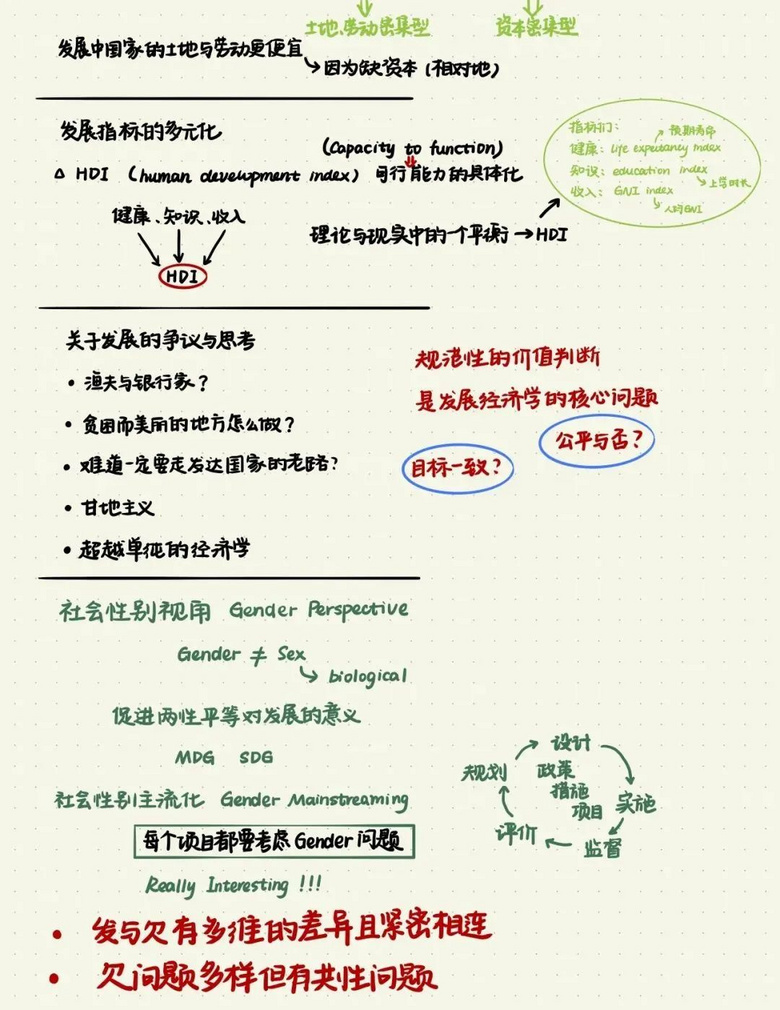 土地、劳动密集型
资本密集型
发展中国家的土地与劳动更便宜
因为缺资本（相对地）
发展指标的多元化
(Capacity to function)
△ HDI （human development index）可行能力的具体化
健康、知识、收入
HDI
理论与现实中的一个平衡→HDI
指标们：
预期寿命
健康：life expectancy index
知识：education index
上学时长
收入：GNI index
人均GNI
关于发展的争议与思考
• 渔夫与银行家？
• 贫困而美丽的地方怎么做？
• 难道一定要走发达国家的老路？
• 甘地主义
• 超越单纯的经济学
规范性的价值判断
是发展经济学的核心问题
公平与否？
目标一致？
社会性别视角 Gender Perspective
Gender ≠ Sex
biological
促进两性平等对发展的意义
MDG SDG
社会性别主流化 Gender Mainstreaming
每个项目都要考虑Gender问题
Really Interesting !!!
设计
规划
政策
措施
项目
实施
评价
监督
• 发与欠有多维的差异且紧密相连
• 欠问题多样但有共性问题